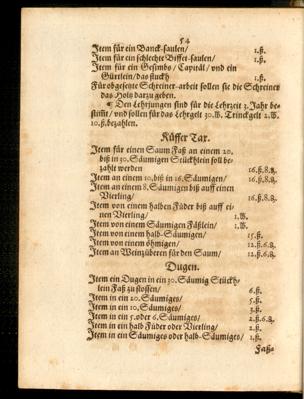 54
Item für ein Banck-saulen/ 1.ß.
Item für ein schlechte Biffet-saulen/ 1.ß.
Item für ein Gesimbs/ Capitäl/ und ein
Gürtlein/ das stuckh 1.ß.
Für obgesetzte Schreiner-arbeit sollen sie die Schreiner
das Holtz darzu geben.
¶ Den Lehrjungen sind für die Lehrzeit 3. Jahr be-
stimt/ und sollen für das Lehrgelt 30. W. Trinckgelt 2. W.
10. ß. bezahlen.
Küffer Tax.
Item für einen Saum Faß an einem 20.
biß in 30. Säumigen Stückhlein soll be-
zahlt werden 16.ß.8.₰.
Item an einem 10. biß in 16. Säumigen/ 16.ß.8.₰.
Item an einem 8. Säumigen biß auff einen
Vierling/ 16.ß.8.₰.
Item von einem halben Füder biß auff ei-
nen Vierling/ 1.W.
Item von einem Säumigen Fäßlein/ 1.W.
Item von einem halb-Säumigen/ 15.ß.
Item von einem öhmigen/ 12.ß.6.₰.
Item an Weinzüberen für den Saum/ 12.ß.6.₰.
Dugen.
Item ein Dugen in ein 30. Säumig Stückh-
lein Faß zu stossen/ 6.ß.
Item in ein 20. Säumiges/ 5.ß.
Item in ein 10. Säumiges/ 3.ß.
Item in ein 5. oder 6. Säumiges/ 2.ß.6.₰.
Item in ein halb Füder oder Vierling/ 2.ß.
Item in ein Säumiges oder halb-Säumiges/ 1.ß.
Faß-